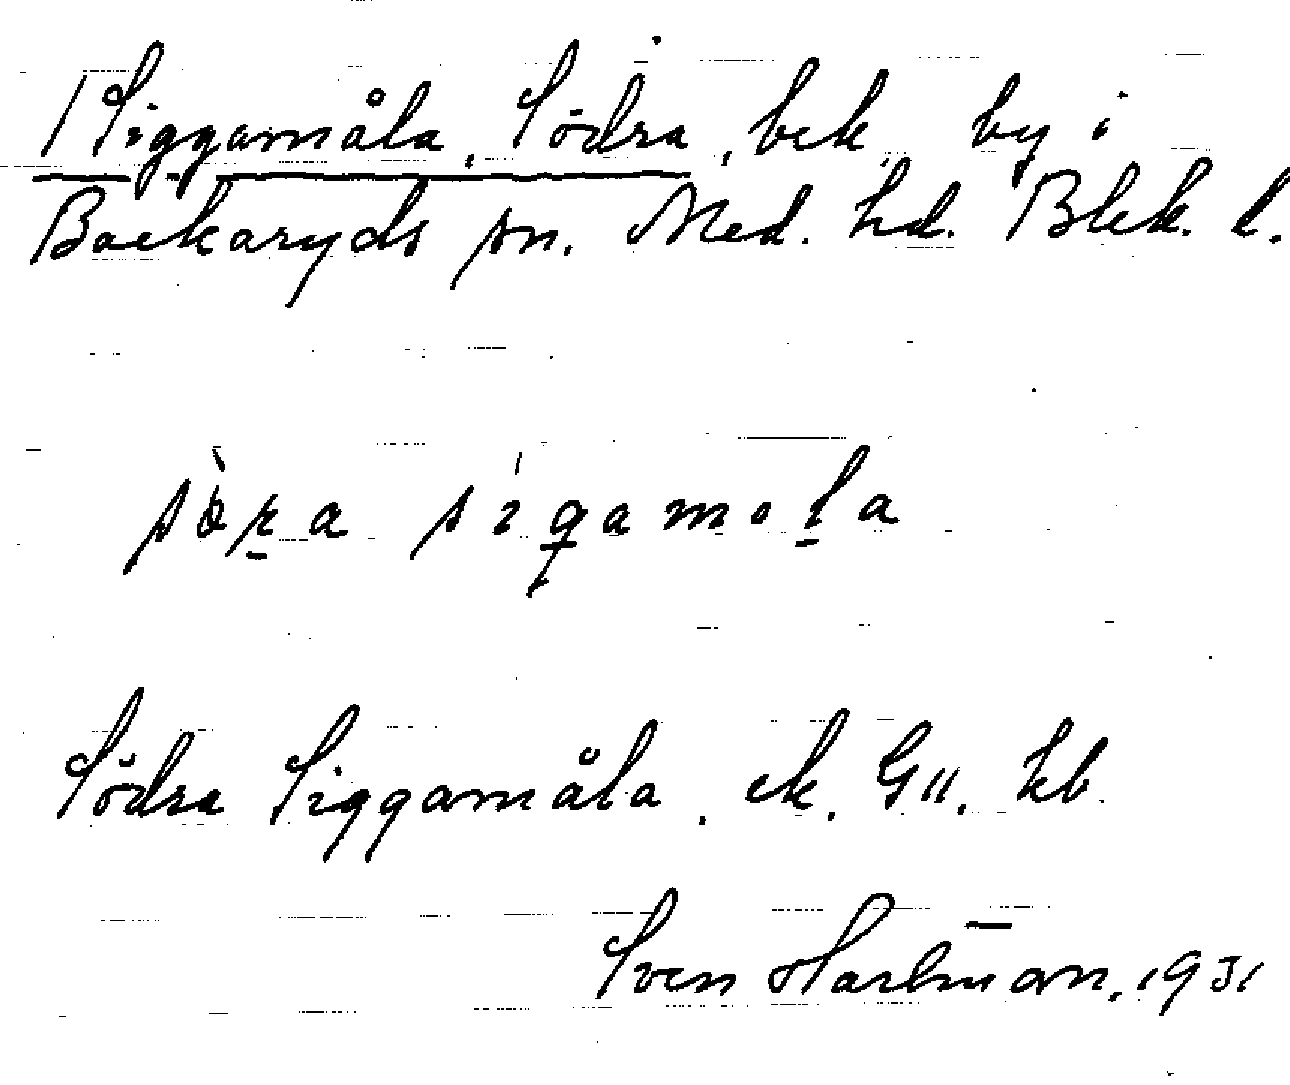 Siggamåla, Södra, bek. by i
Backaryds sn. Med. hd. Blek. l.
sòra sígamola
Södra Siggamåla. ek. G11. kb.
Sven Harlman, 1931